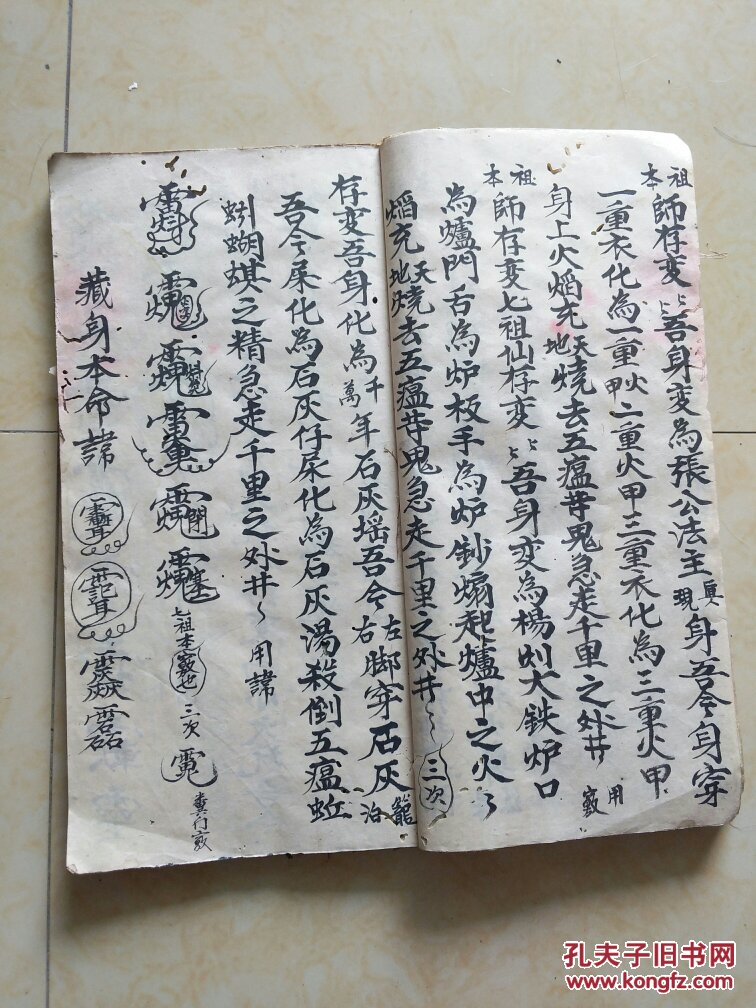 祖本師存变〻吾身変為張公法主真現身吾今身穿
一重衣化為一重火甲二重火甲三重衣化為三重火甲
身上火焰充天地燒去五瘟芽鬼急走千里之外井 用
祖本師存变七祖仙存变〻吾身変為楊烈大鉄炉口
為爐門舌為炉板手為炉鈔煽起爐中之火
焰充天地燒去五瘟芽鬼急走千里之外井 三次
存变吾身化為千萬年石灰瑶吾今左右脚穿石灰籠
吾今屎化為石灰仔尿化為石灰湯殺倒五瘟蚯
蚓蝴蜞之精急走千里之外井 用諱
七祖本 三次
藏身本命諱
孔夫子旧书网
www.kongfz.com